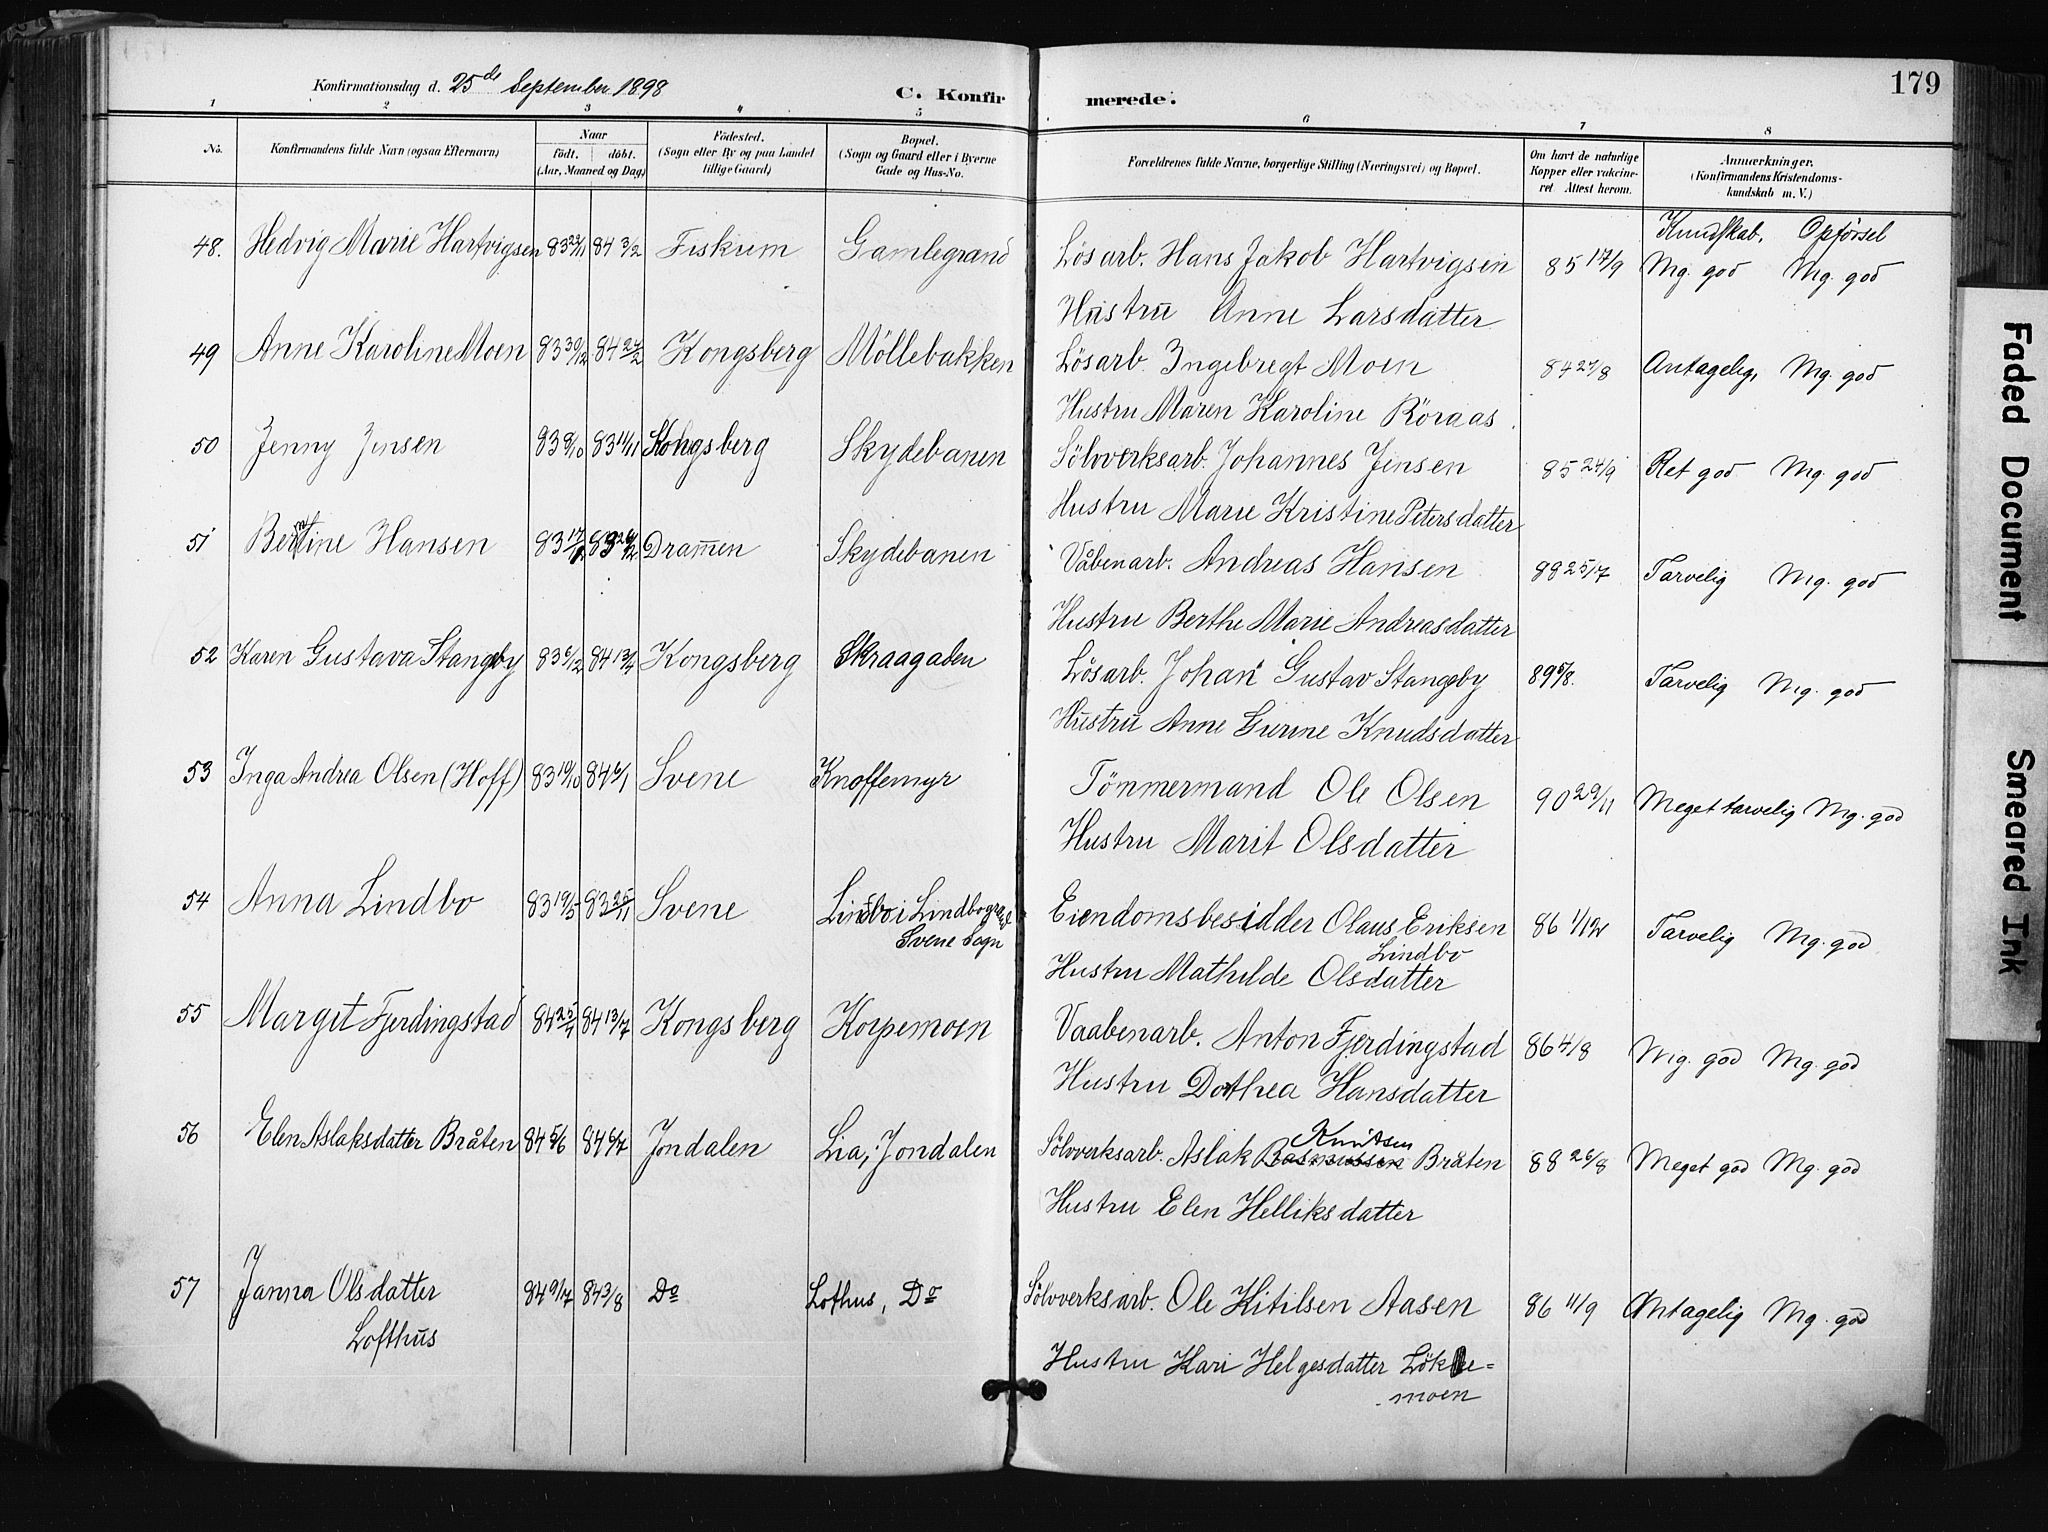 Konfirmationsdag d. 25de September 1898
C. Konfirmerede.
179
1 2 3 " 5 6 7 8
No. Konfirmandens fulde Navn (ogsaa Efternavn) Naar født. døbt. (Aar, Maaned og Dag) Fødested. (Sogn eller By og paa Landet tillige Gaard) Bopæl. (Sogn og Gaard eller i Byerne Gade og Hus-No. Forældrenes fulde Navne, borgerlige Stilling (Næringsvei) og Bopæl. Om havt de naturlige Kopper eller vakcineret Attest herom. Anmærkninger. (Konfirmandens Kristendomskundskab m. V.)
Kundskab. Opførsel
48. Hedvig Marie Hartvigsen 83 23/11 84 3/2 Fiskum Gamlegrand Lösarb. Hans Jakob Hartvigsen 85 17/9 Mg. god Mg. god
Hustru Anne Larsdatter
49 Anne Karoline Moen 83 30/12 84 24/2 Kongsberg Möllebakken Lösarb. Ingebregt Moen 84 27/8 Antagelig, Mg. god
Hustru Maren Karoline Röraas
50 Jenny Jensen 83 8/10 83 11/11 Kongsberg Skydebanen Sölvverksarb. Johannes Jensen 85 24/9 Ret god Mg. god
Hustru Marie Kristine Petersdatter
51 Berntine Hansen 83 Drammen Skydebanen Våbenarb. Andreas Hansen 88 25/7 Tarvelig Mg. god
Hustru Berthe Marie Andreasdatter
52 Karen Gustava Stangeby 83 6/12 84 13/4 Kongsberg Skraagaden Lösarb. Johan Gustav Stangeby 89 5/8. Tarvelig Mg. god
Hustru Anne Gurine Knudsdatter
53 Inga Andrea Olsen (Hoff) 83 19/10 84 6/1 Svene Knoffemyr Tömmermand Ole Olsen 90 29/11 Meget tarvelig Mg. god
Hustru Marit Olsdatter
54 Anna Lindbo 83 19/5 83 25/11 Svene Lindbo i Lindbogrend Eiendomsbesidder Olaus Eriksen 86 1/12 Tarvelig Mg. god
Svene Sogn Lindbo
Hustru Mathilde Olsdatter
55 Margit Fjerdingstad 84 25/4 84 13/7 Kongsberg Korpemoen Vaabenarb. Anton Fjerdingstad 86 4/8 Mg. god Mg. god
Hustru Dorthea Hansdatter
56 Elen Aslaksdatter Bråten 84 5/6 84 6/7 Jondalen Lia, Jondalen Sölvverksarb. Aslak Rasmussen Knutsen Bråten 88 26/8 Meget god Mg. god
Hustru Elen Helliksdatter
57 Janna Olsdatter 84 9/7 84 3/8 Do Lothus, Do Sölvverksarb. Ole Kitilsen Aasen 86 11/9 Antagelig Mg. god
Lofthus
Hustru Kari Helgesdatter Lökke=
moen
Faded Document
Smeared Ink